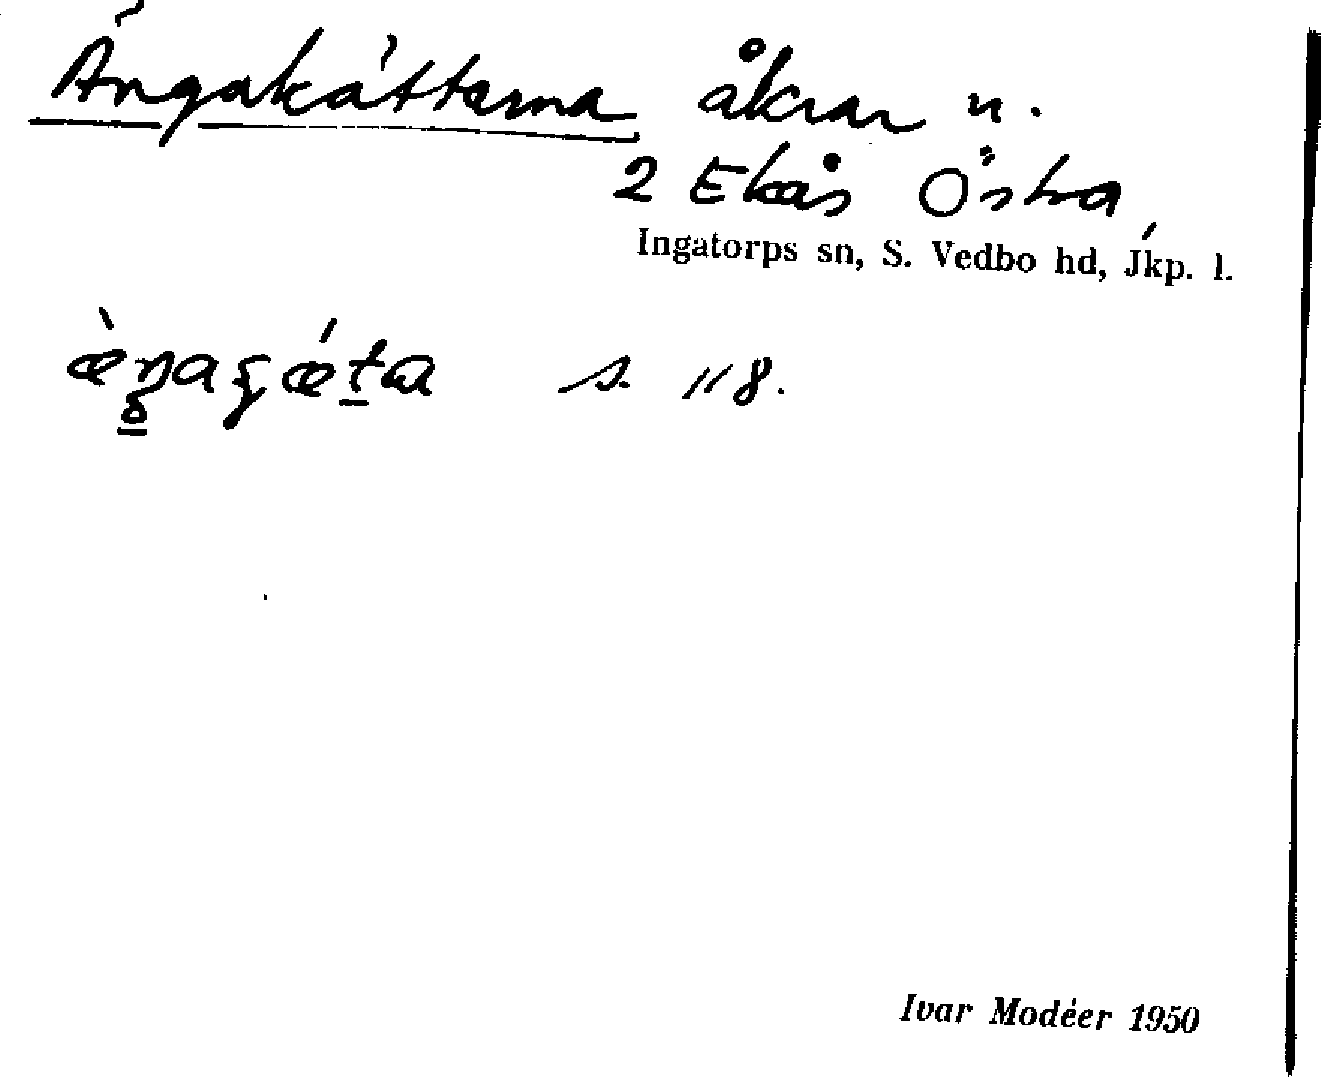 Ängakätterna åkrar u.
2 Ekås Östra,
Ingatorps sn, S. Vedbo hd, Jkp. l.
s. 118.
Ivar Modéer 1950